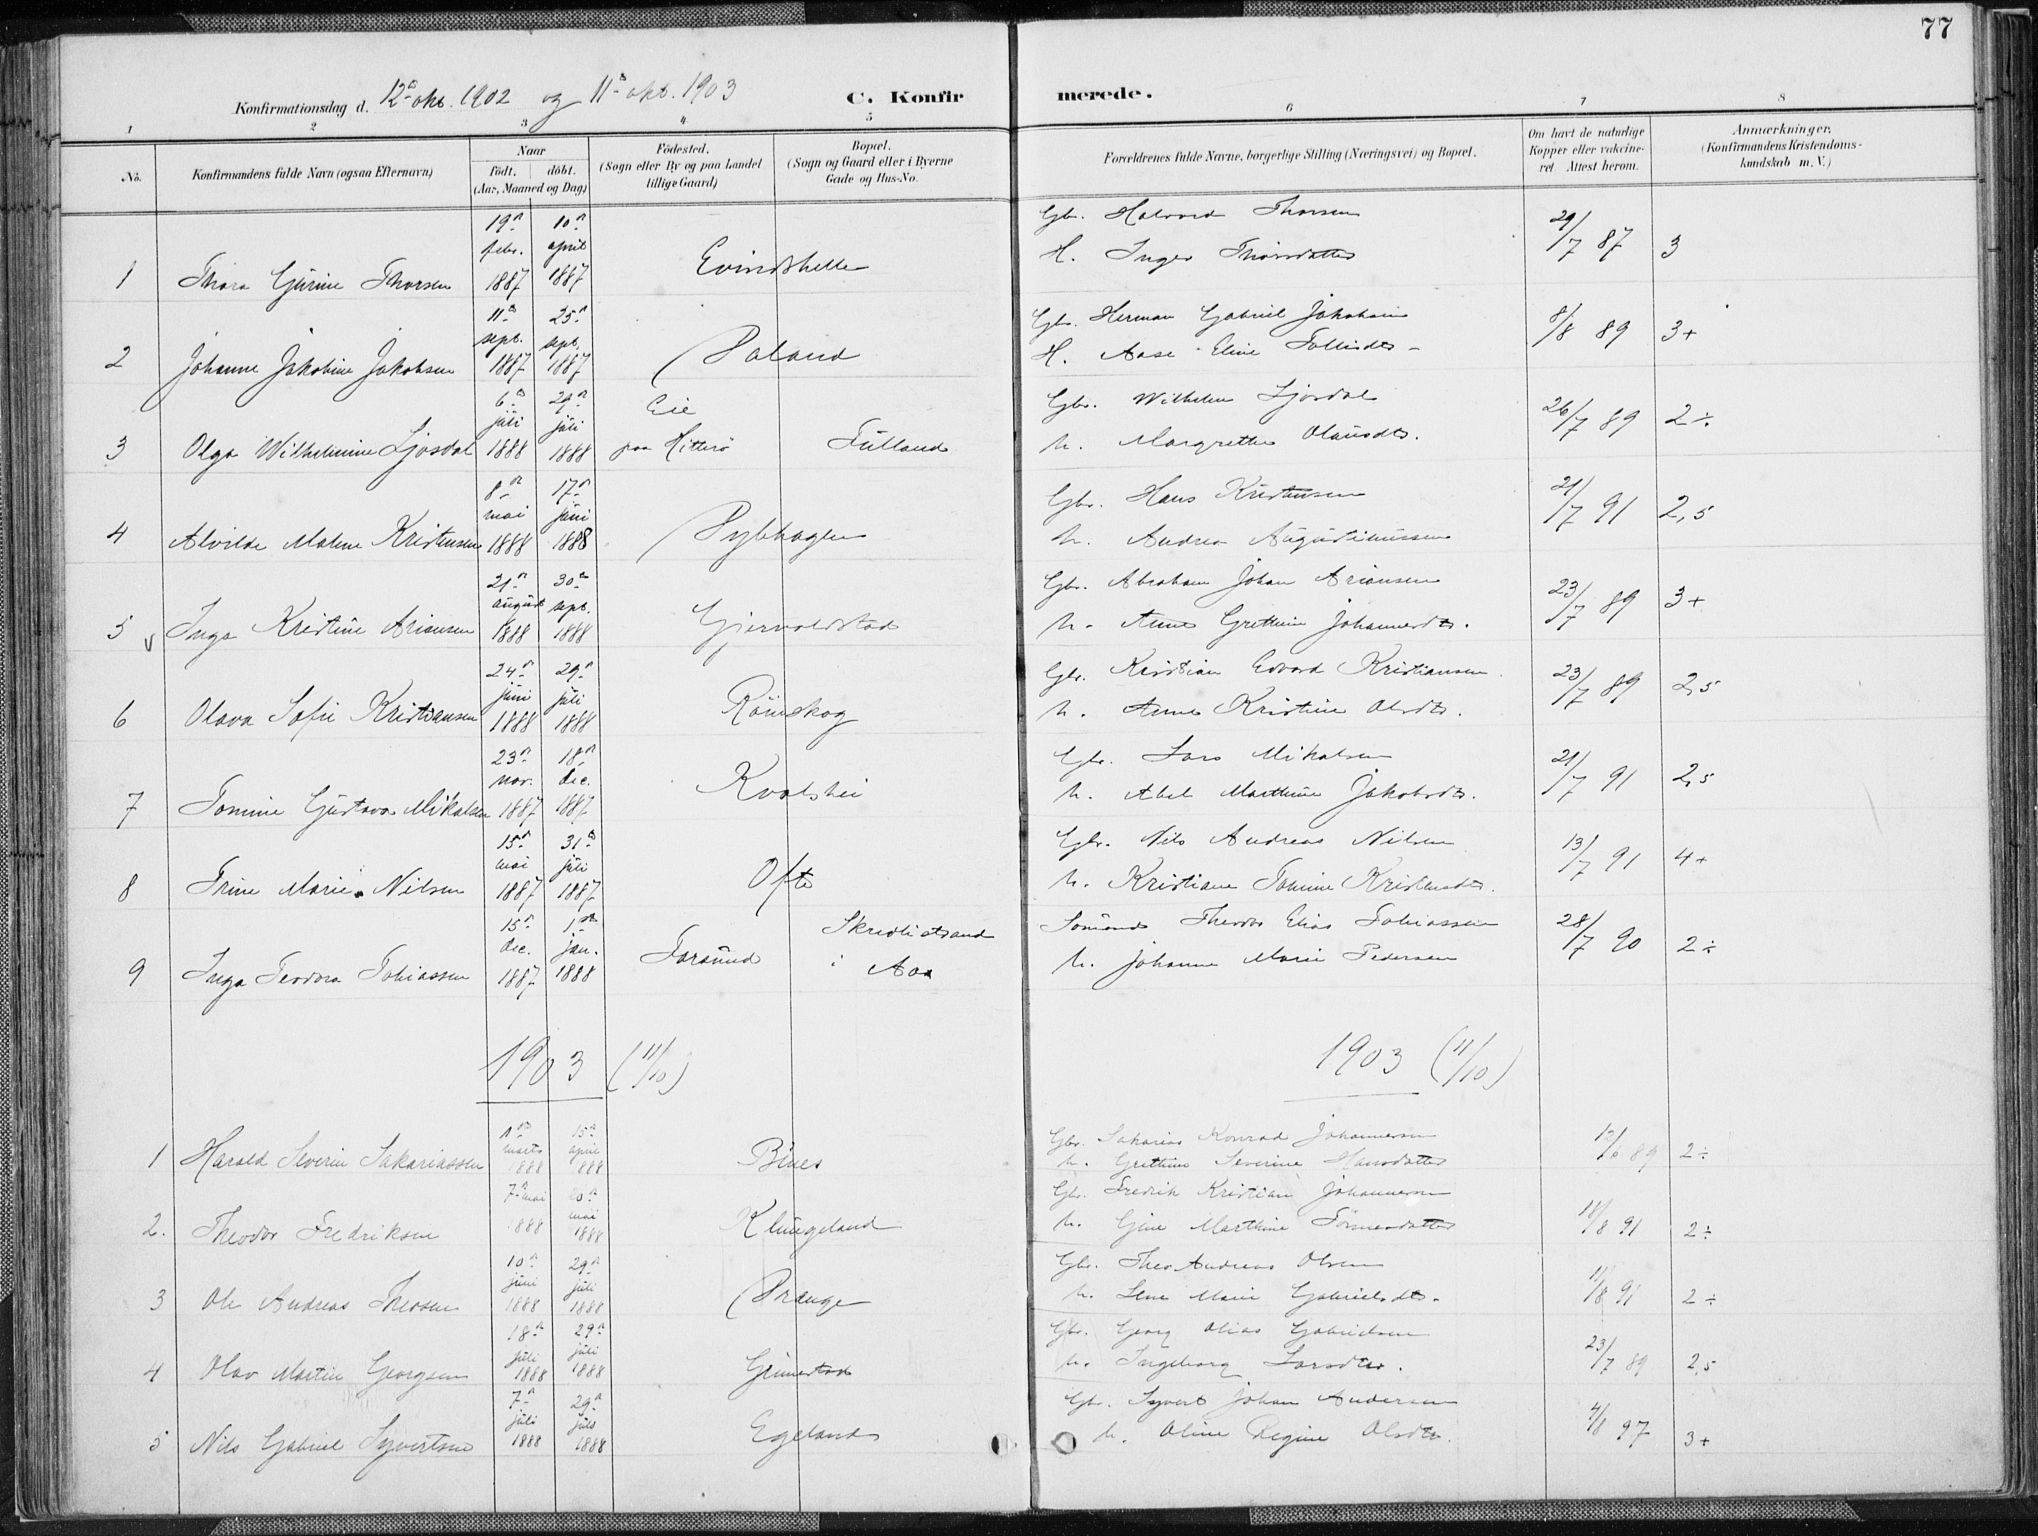 77
Konfirmationsdag d. 12te okt. 1902 og 11te okt. 1903 C. Konfirmerede.
1 2 3 4 5 6 7 8
No. Konfirmandens fulde Navn (ogsaa Efternavn)
Naar
födt. döbt.
(Aar, Maaned og Dag)
Födested.
(Sogn eller By og paa Landet
tillige Gaard)
Bopæl.
(Sogn og Gaard eller i Byerne
Gade og Hus-No.
Forældrenes fulde Navne, borgerlige Stilling (Næringsvei) og Bopæl.
Om havt de naturlige
Kopper eller vakcine-
ret Attest herom.
Anmærkninger.
(Konfirmandens Kristendoms-
kundskab m. V.)
19de 10de Gbr. Halvord Thorsen 29/7 87 3
febr. april H. Inger Thorsdatter
1 Thora Gurine Thorsen 1887 1887 Evindshelle
11te 25de Gbr. Herman Gabriel Jakobsen 8/8 89 3+
sept. sept. H. Aase Eline Tollisdtr
2 Johanne Jakobine Jakobsen 1887 1887 Paland
6te 29de Eie Gbr. Wilhelm Ljosdal 26/7 89 2÷
juli juli h. Margrethe Olausdtr.
3 Olga Wilhelmine Ljosdal 1888 1888 paa Hitterö Fulland
8de 17de Gbr. Hans Kristensen 21/7 91 2,5
mai juni h. Andrea Augustinussen
4 Alvilde Malene Kristensen 1888 1888 Pybhagen
21de 30te Gbr. Abraham Johan Ariansen 23/7 89 3+
august sept. h. Anne Grethine Johannesdtr.
5 Inga Kristine Ariansen 1888 1888 Gjernoldstad
24de 29de Gbr. Kristian Edvard Kristiansen 23/7 89 2,5
juni juli h. Anne Kristine Olsdtr.
6 Olava Sofie Kristiansen 1888 1888 Römskog
23de 18de Gbr. Lars Mikalsen 21/7 91 2,5
nov. dec. h. Abel Marthine Jakobsdtr.
7 Tomine Gustava Mikalsen 1887 1887 Kvalshei
15de 31te Gbr. Nils Andreas Nilsen 13/7 91 4+
mai juli h. Kristiane Tomine Kristensdtr.
8 Trine Marie Nilsen 1887 1887 Ofte
15de 1ste Skredlistrand Sömand Theodor Elias Tobiassen 28/7 90 2÷
dec. jan. Farsund i Aa h. Johanne Marie Pedersen
9 Inga Teodora Tobiassen 1887 1888
1903 (11/10) 1903 (11/10)
1ste 15de Gbr. Sakarias Konrad Johannesen
1 Harald Severin Sakariassen marts april Bines h. Grethine Severine Hansdatter 89 2÷
1888 1888
7de mai 20de Gbr. Fredrik Kristian Johannesen
2. Theodor Fredriksen 1888 mai 1888 Klungeland h. Gine Marthine Tönnesdatter 11/8 91 2÷
10de 29de Gbr. Theo Andreas Olsen
juni juli
3 Ole Andreas Theosen 1888 1888 Prange h. Lene Marie Gabrielsdtr. 11/8 91 2÷
18de 29de Gbr. Georg Olias Gabrielsen
juli juli
4 Olav Martin Georgsen 1888 1888 Grimestad h. Ingeborg Larsdtr. 23/7 89 2,5
7de 29de Gbr. Syvert Johan Andersen
juli juli
5 Nils Gabriel Syvertsen 1888 1888 Egeland h. Oline Regine Olsdtr. 4/8 97 3+